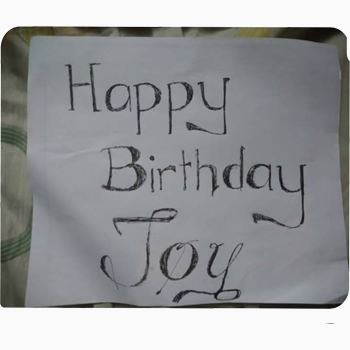 Happy
Birthday
Joy